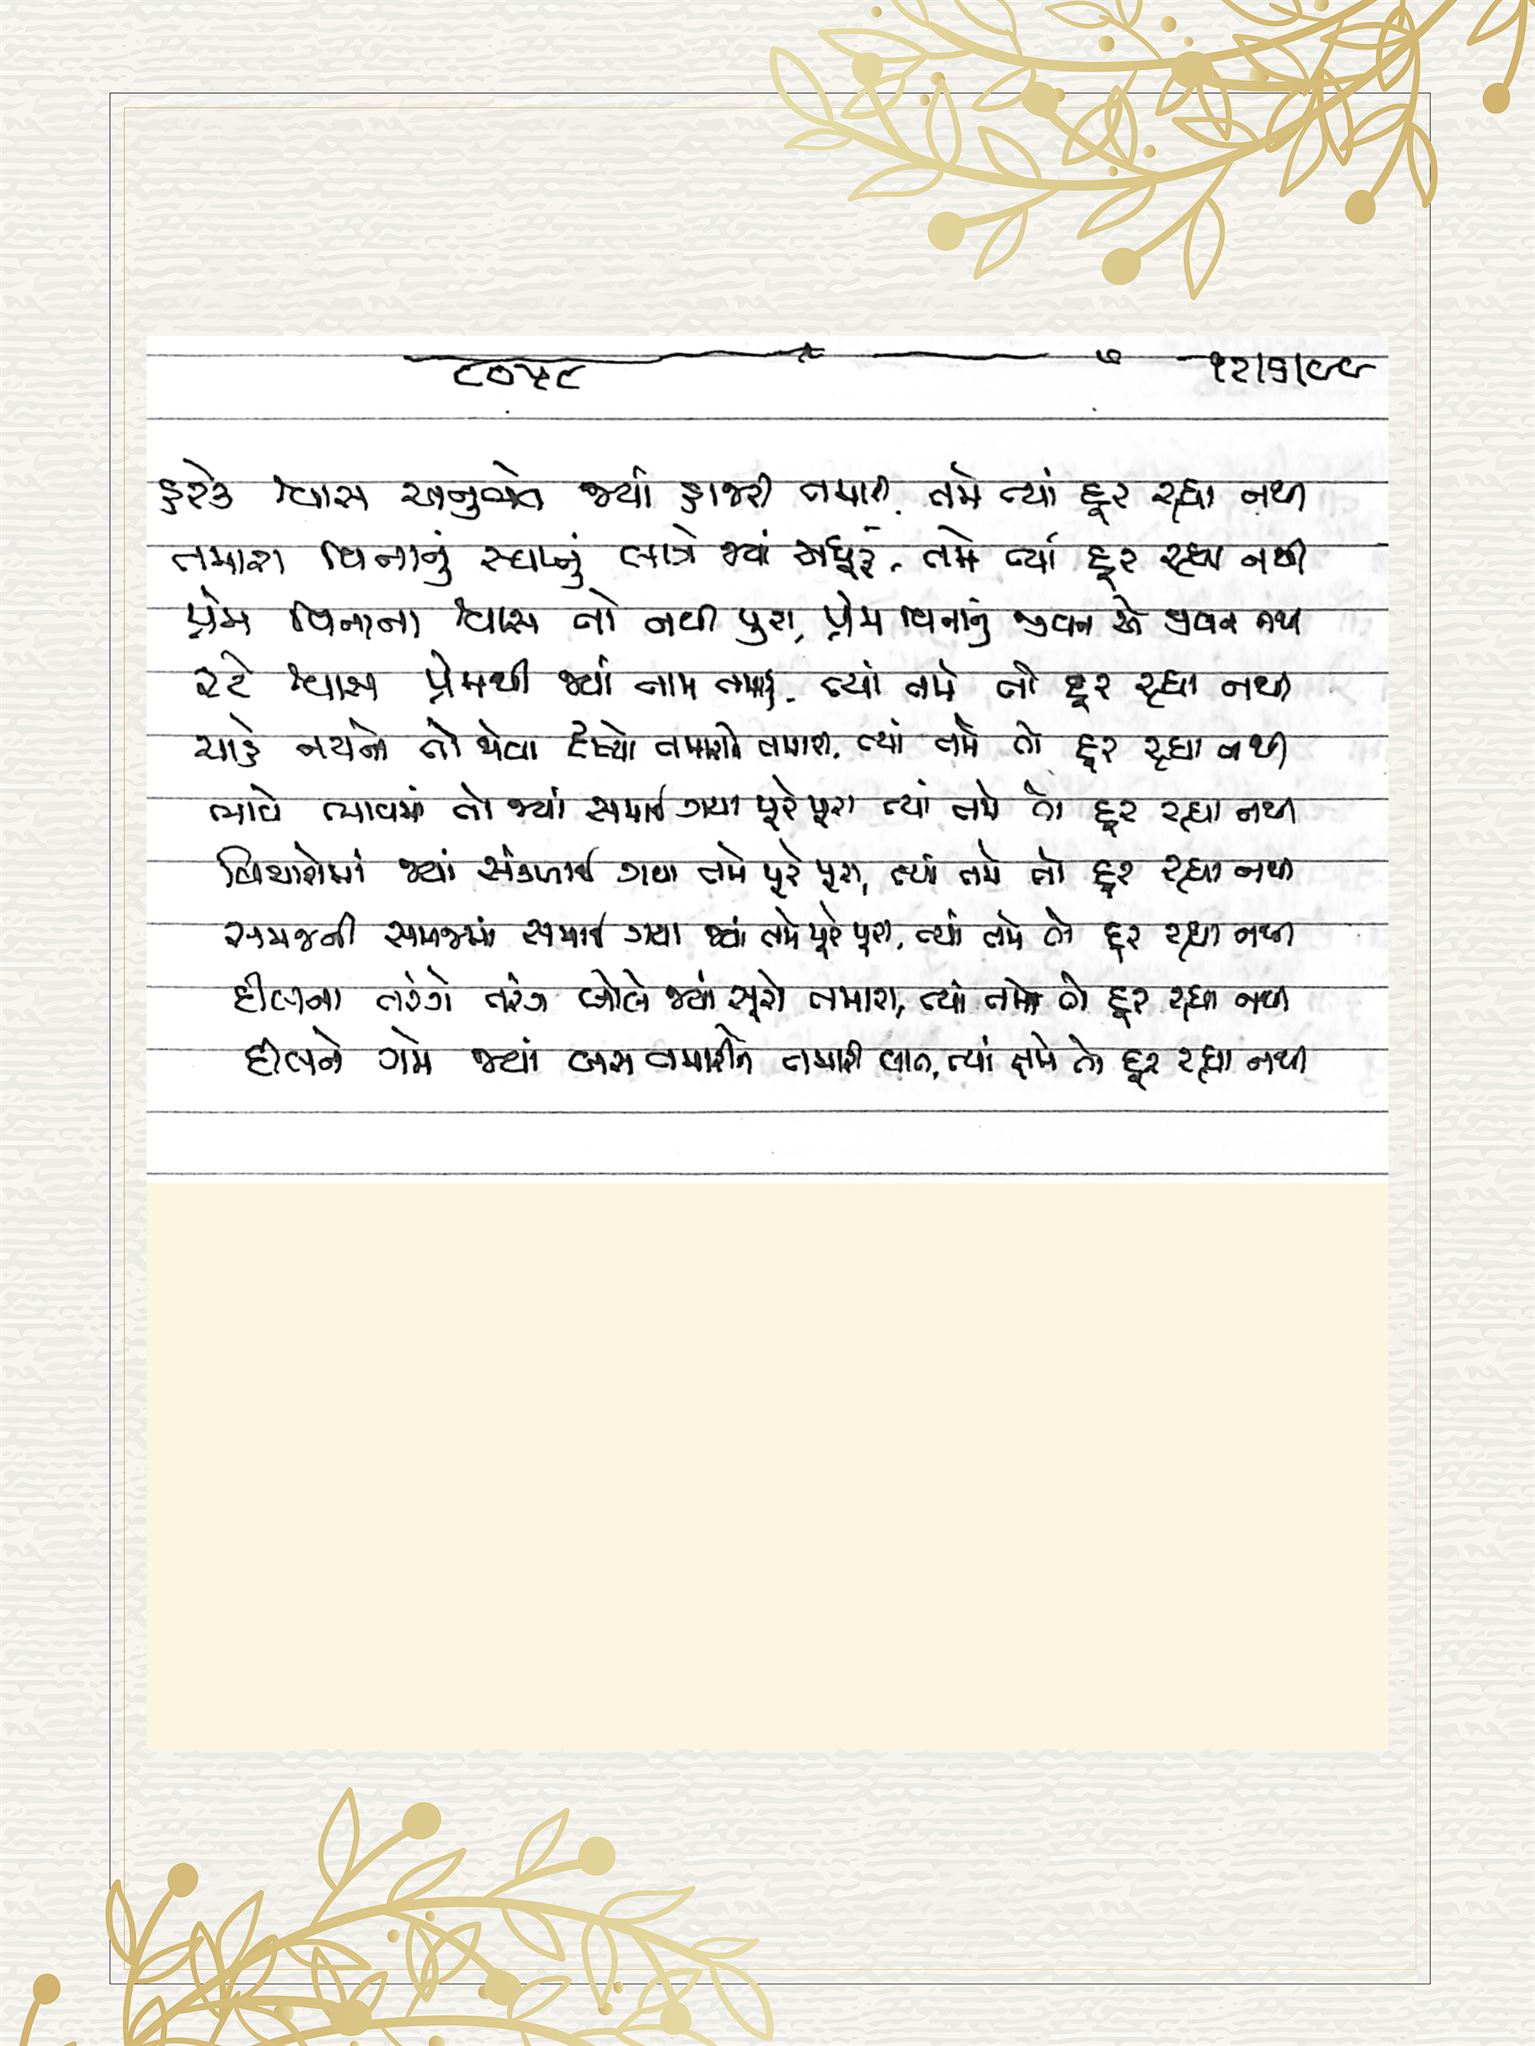 ૮૦૫૮ ૧૨/૬/૯૯
હરેક શ્વાસ અનુભવે જ્યાં હાજરી તમારી, તમે ત્યાં દૂર રહ્યા નથી
તમારા વિનાનું સ્વપ્નું લાગે જ્યાં અધૂરું, તમે ત્યાં દૂર રહ્યા નથી
પ્રેમ વિનાના શ્વાસ તો નથી પુરા, પ્રેમ વિનાનું જીવન એ જીવન નથી
રટે શ્વાસ પ્રેમથી જ્યાં નામ તમારું, ત્યાં તમે તો દૂર રહ્યા નથી
ચાહે નયનો તો જોવા દૃશ્યો તમારાને તમારા, ત્યાં તમે તો દૂર રહ્યા નથી
ભાવે ભાવમાં તો જ્યાં સમાઈ ગયા પૂરેપૂરા ત્યાં તમે તો દૂર રહ્યા નથી
વિચારોમાં જ્યાં સંકળાઈ ગયા તમે પૂરેપૂરા, ત્યાં તમે તો દૂર રહ્યા નથી
સમજની સમજમાં સમાઈ ગયા જ્યાં તમે પૂરેપૂરા, ત્યાં તમે તો દૂર રહ્યા નથી
દીલના તરંગે તરંગ બોલે જ્યાં સૂરો તમારા, ત્યાં તમે તો દૂર રહ્યા નથી
દીલને ગમે જ્યાં બસ તમારીને તમારી વાત, ત્યાં તમે તો દૂર રહ્યા નથી